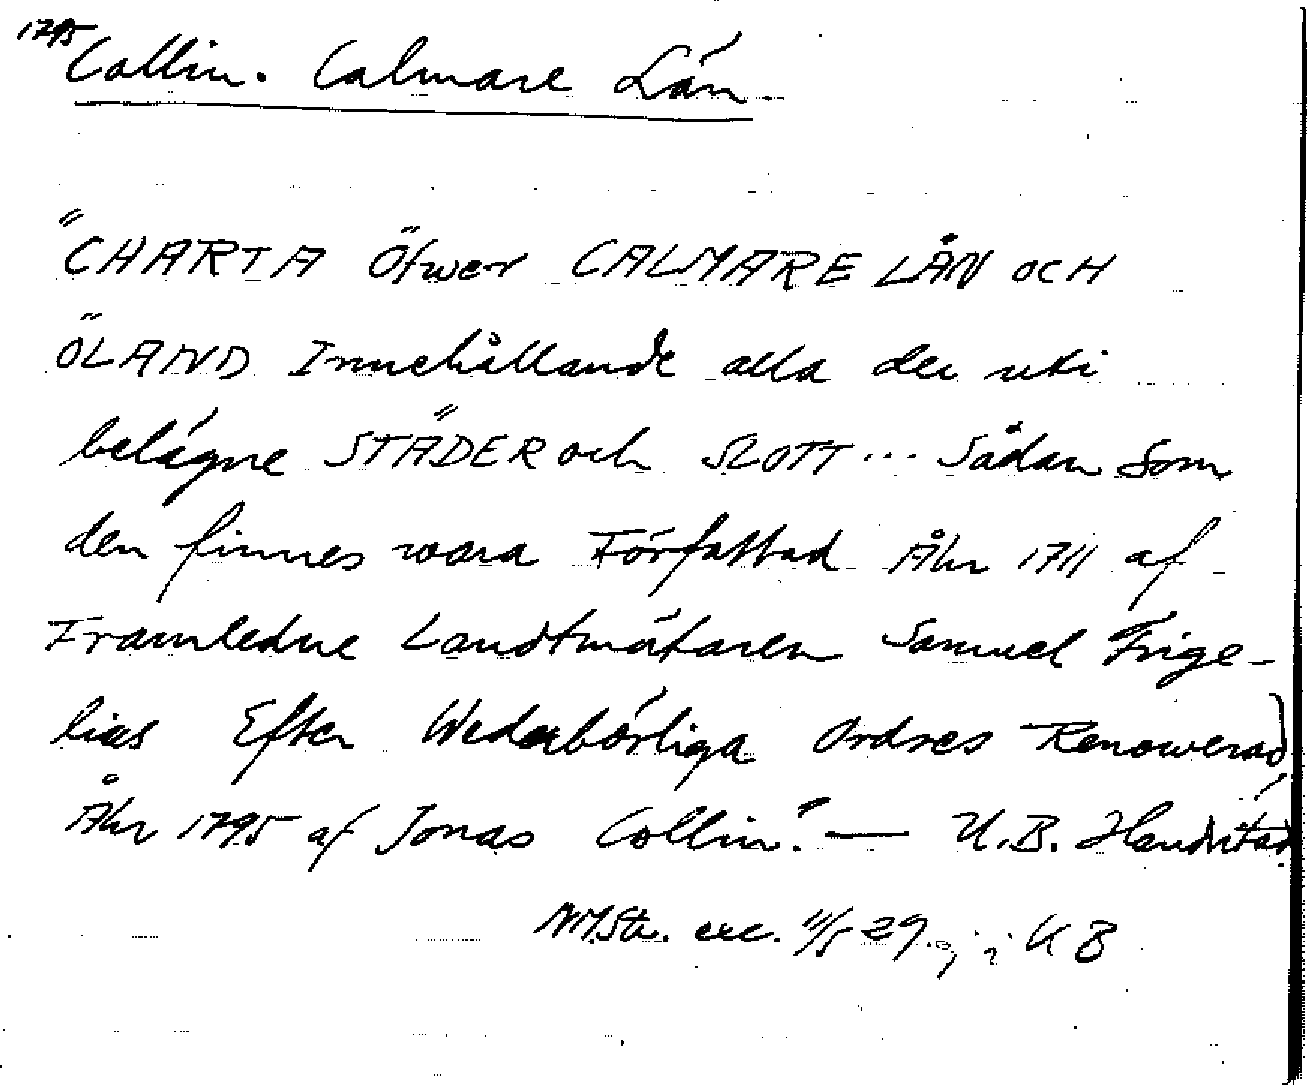 1795
Collin. Calmare Län
"CHARTA Öfwer CALMARE LÄN OCH
ÖLAND Innehållande alla der uti
belägne STÄDER och SLOTT... Sådan Som
den finnes wara Författad Åhr 1711 af
Framledne Landtmätaren Samuel Frige-
lius Efter Wederbörliga Ordres Renowerad
Åhr 1795 af Jonas Collin." — U.B. Handritad
NM.Sth. exc. 11/5 29. KB